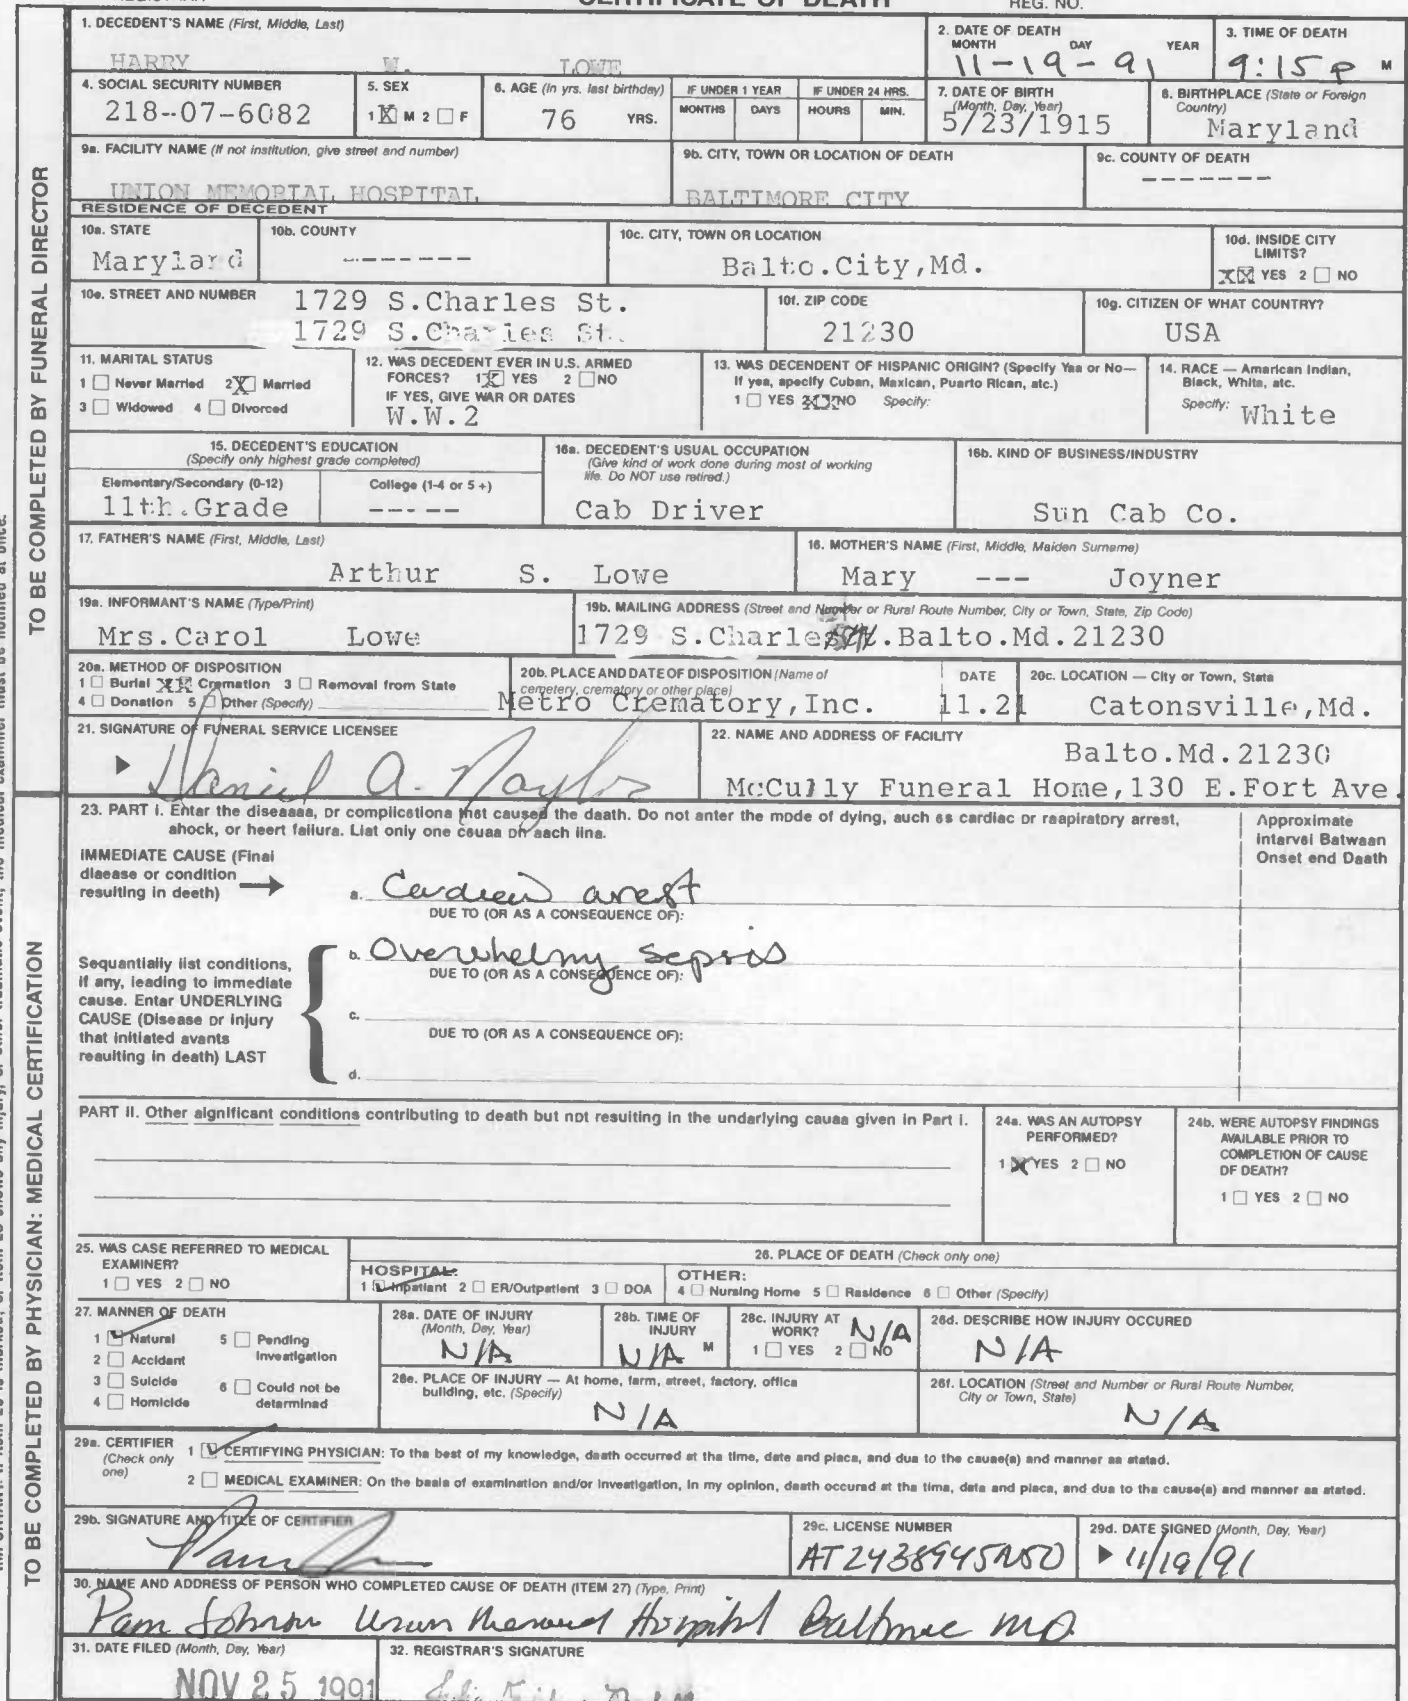 CERTIFICATE OF DEATH
REG. NO.
1. DECEDENT'S NAME (First, Middle, Last)
HARRY W. LOWE
2. DATE OF DEATH
MONTH DAY YEAR
11-19-91
3. TIME OF DEATH
9:15 P M
4. SOCIAL SECURITY NUMBER
218-07-6082
5. SEX
1 X M 2 F
6. AGE (In yrs. last birthday)
76 YRS.
IF UNDER 1 YEAR
MONTHS DAYS
IF UNDER 24 HRS.
HOURS MIN.
7. DATE OF BIRTH
(Month, Day, Year)
5/23/1915
8. BIRTHPLACE (State or Foreign Country)
Maryland
9a. FACILITY NAME (If not institution, give street and number)
UNION MEMORIAL HOSPITAL
9b. CITY, TOWN OR LOCATION OF DEATH
BALTIMORE CITY
9c. COUNTY OF DEATH
-------
TO BE COMPLETED BY FUNERAL DIRECTOR
RESIDENCE OF DECEDENT
10a. STATE
Maryland
10b. COUNTY
-------
10c. CITY, TOWN OR LOCATION
Balto.City,Md.
10d. INSIDE CITY LIMITS?
XX YES 2 NO
10e. STREET AND NUMBER
1729 S.Charles St.
1729 S.Charles St.
10f. ZIP CODE
21230
10g. CITIZEN OF WHAT COUNTRY?
USA
11. MARITAL STATUS
1 Never Married 2 X Married
3 Widowed 4 Divorced
12. WAS DECEDENT EVER IN U.S. ARMED
FORCES? 1 X YES 2 NO
IF YES, GIVE WAR OR DATES
W.W.2
13. WAS DECENDENT OF HISPANIC ORIGIN? (Specify Yes or No—
If yes, specify Cuban, Mexican, Puerto Rican, etc.)
1 YES 2 X NO Specify:
14. RACE — American Indian,
Black, White, etc.
Specify: White
15. DECEDENT'S EDUCATION
(Specify only highest grade completed)
Elementary/Secondary (0-12)
11th.Grade
College (1-4 or 5 +)
-----
16a. DECEDENT'S USUAL OCCUPATION
(Give kind of work done during most of working
life. Do NOT use retired.)
Cab Driver
16b. KIND OF BUSINESS/INDUSTRY
Sun Cab Co.
17. FATHER'S NAME (First, Middle, Last)
Arthur S. Lowe
18. MOTHER'S NAME (First, Middle, Maiden Surname)
Mary --- Joyner
19a. INFORMANT'S NAME (Type/Print)
Mrs.Carol Lowe
19b. MAILING ADDRESS (Street and Number or Rural Route Number, City or Town, State, Zip Code)
1729 S.Charles St.Balto.Md.21230
20a. METHOD OF DISPOSITION
1 Burial XX Cremation 3 Removal from State
4 Donation 5 Other (Specify)
20b. PLACE AND DATE OF DISPOSITION (Name of
cemetery, crematory or other place)
Metro Crematory,Inc.
DATE
11.21
20c. LOCATION — City or Town, State
Catonsville,Md.
21. SIGNATURE OF FUNERAL SERVICE LICENSEE
Daniel A. Naylor
22. NAME AND ADDRESS OF FACILITY
Balto.Md.21230
McCully Funeral Home,130 E.Fort Ave.
TO BE COMPLETED BY PHYSICIAN: MEDICAL CERTIFICATION
23. PART I. Enter the diseases, or complications that caused the death. Do not enter the mode of dying, such as cardiac or respiratory arrest,
shock, or heart failure. List only one cause on each line.
Approximate
Interval Between
Onset and Death
IMMEDIATE CAUSE (Final
disease or condition
resulting in death)
a. Cardiac arrest
DUE TO (OR AS A CONSEQUENCE OF):
Sequentially list conditions,
if any, leading to immediate
cause. Enter UNDERLYING
CAUSE (Disease or injury
that initiated events
resulting in death) LAST
b. Overwhelmy sepsis
DUE TO (OR AS A CONSEQUENCE OF):
c.
DUE TO (OR AS A CONSEQUENCE OF):
d.
PART II. Other significant conditions contributing to death but not resulting in the underlying cause given in Part I.
24a. WAS AN AUTOPSY
PERFORMED?
1 X YES 2 NO
24b. WERE AUTOPSY FINDINGS
AVAILABLE PRIOR TO
COMPLETION OF CAUSE
OF DEATH?
1 YES 2 NO
25. WAS CASE REFERRED TO MEDICAL
EXAMINER?
1 YES 2 NO
26. PLACE OF DEATH (Check only one)
HOSPITAL:
1 Inpatient 2 ER/Outpatient 3 DOA
OTHER:
4 Nursing Home 5 Residence 6 Other (Specify)
27. MANNER OF DEATH
1 Natural 5 Pending Investigation
2 Accident
3 Suicide 6 Could not be determined
4 Homicide
28a. DATE OF INJURY
(Month, Day, Year)
N/A
28b. TIME OF INJURY
N/A M
28c. INJURY AT WORK?
N/A
1 YES 2 NO
28d. DESCRIBE HOW INJURY OCCURED
N/A
28e. PLACE OF INJURY — At home, farm, street, factory, office
building, etc. (Specify)
N/A
28f. LOCATION (Street and Number or Rural Route Number,
City or Town, State)
N/A
29a. CERTIFIER
(Check only one)
1 CERTIFYING PHYSICIAN: To the best of my knowledge, death occurred at the time, date and place, and due to the cause(s) and manner as stated.
2 MEDICAL EXAMINER: On the basis of examination and/or investigation, in my opinion, death occured at the time, date and place, and due to the cause(s) and manner as stated.
29b. SIGNATURE AND TITLE OF CERTIFIER
Pam
29c. LICENSE NUMBER
29d. DATE SIGNED (Month, Day, Year)
11/19/91
30. NAME AND ADDRESS OF PERSON WHO COMPLETED CAUSE OF DEATH (ITEM 27) (Type, Print)
Pam Johnson Union Memorial Hospital Baltimore MD
31. DATE FILED (Month, Day, Year)
NOV 25 1991
32. REGISTRAR'S SIGNATURE